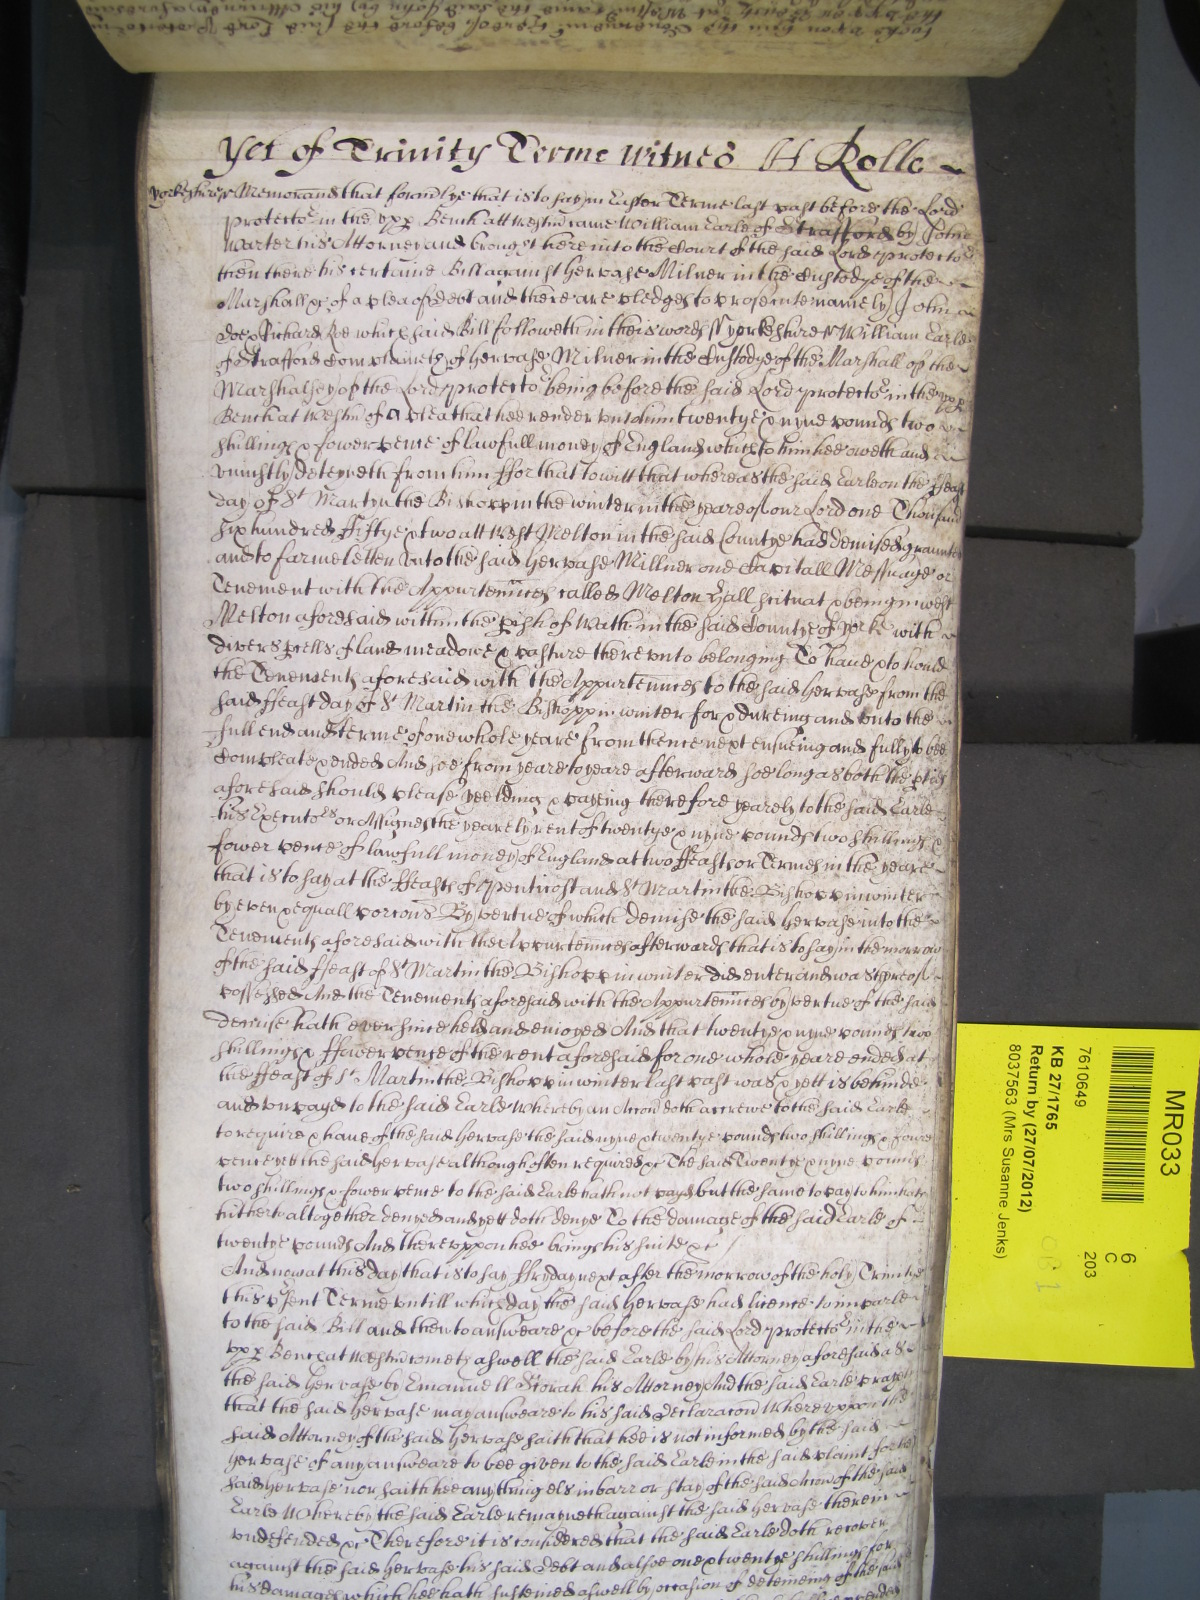 Yet of Trinity Terme Witnes H Rolle
Yorkeshire ss Memorand that formlye that is to say in Easter Terme last past before the Lord
Protector in the upp Bench att Westm came William Earle of Strafford by John
Warter his Attorney and brought here into the Court of the said Lord Protector
then there his certaine Bill against Hervase Milner in the Custodye of the
Marshall &c of a plea of Debt and there are pledges to prosecute namely John
Doe & Richard Roe which said Bill followeth in theis words ss Yorkeshire ss William Earle
of Strafford Complaineth of Hervase Milner in the Custodye of the Marshall of the
Marshalsey of the Lord Protector being before the said Lord Protector in the upp
Bench at Westm of a plea that hee render unto him twentye & nyne pounds two
shillings & fower pence of lawfull money of England which to him hee oweth and
uniustly deteyneth from him ffor that to witt that whereas the said Earle on the ffeast
day of St Martyn the Bishopp in the winter in the yeare of our Lord one Thousand
six hundred ffiftye & two att West Melton in the said Countye had demised graunted
and to farme letten Unto the said Hervase Millner one Capitall Messuage or
Tenement with the Appurtennces called Melton Hall scituat & being in West
Melton aforesaid within the pish of Wath in the said Countye of Yorke with
divers pcells of land meadowe & pasture there unto belonging To have & to hould
the Tenements aforesaid with the Appurtennces to the said Hervase from the
said ffeast day of St Martin the Bishopp in winter for & dureing and unto the
full end and Terme of one whole yeare from thence next ensueing and fully to bee
Compleate & ended And soe from yeare to yeare afterward soe long as both the pties
aforesaid should please yeelding & payeing therefore yearely to the said Earle
his Executors or Assignes the yearely rent of twentye & nyne pounds two shillings &
fower pence of lawfull money of England at two ffeasts or Termes in the yeare
that is to say at the ffeasts of Penticost and St Martin the Bishopp in winter
by even & equall porcons By vertue of which demise the said Hervase into the
Tenements aforesaid with the Appurtennces afterwards that is to say in the morrow
of the said ffeast of St Martin the Bishopp in winter did enter and was thereof
possessed And the Tenements aforesaid with the Appurtennces by vertue of the said
demise hath ever since held and enioyed And that twentye & nyne pounds two
shillings & ffower pence of the rent aforesaid for one whole yeare ended at
the ffeast of St Martin the Bishopp in winter last past was & yett is behinde
and unpayd to the said Earle Whereby an Accon doth accrewe to the said Earle
to require & have of the said Hervase the said nyne & twentye pounds two shillings & fower
pence yett the said Hervase although often required &c The said Twentye & nyne pounds
two shillings & fower pence to the said Earle hath not payd but the same to pay to him hath
hitherto altogether denyed and yett doth denye To the damage of the said Earle of
twentye pounds And thereuppon hee brings his suite &c
And now at this day that is to say ffryday next after the morrow of the holy Trinitye
this psent Terme untill which day the said Hervase had licence to imparle
to the said Bill and then to answeare &c before the said Lord Protector in the
upp Bench at Westm cometh aswell the said Earle by his Attorney aforesaid as
the said Hervase by Emanuell his Attorney And the said Earle prayeth
that the said Hervase may answeare to his said Declaracon Whereuppon the
said Attorney of the said Hervase saith that hee is not informed by the said
Hervase of any answeare to bee given to the said Earle in the said plaint for the
said Hervase nor saith hee any thing els in barr or stay of the said Accon of the said
Earle Whereby the said Earle remayneth against the said Hervase therein
undefended &c Therefore it is considered that the said Earle doth recover
against the said Hervase his said Debt and alsoe one & twentye shillings for
his damages which hee hath susteined aswell by occasion of deteineing of the said
MR033
6
C
203
7610649
KB 27/1765
Return by (27/07/2012)
8037563 (Mrs Susanne Jenks)